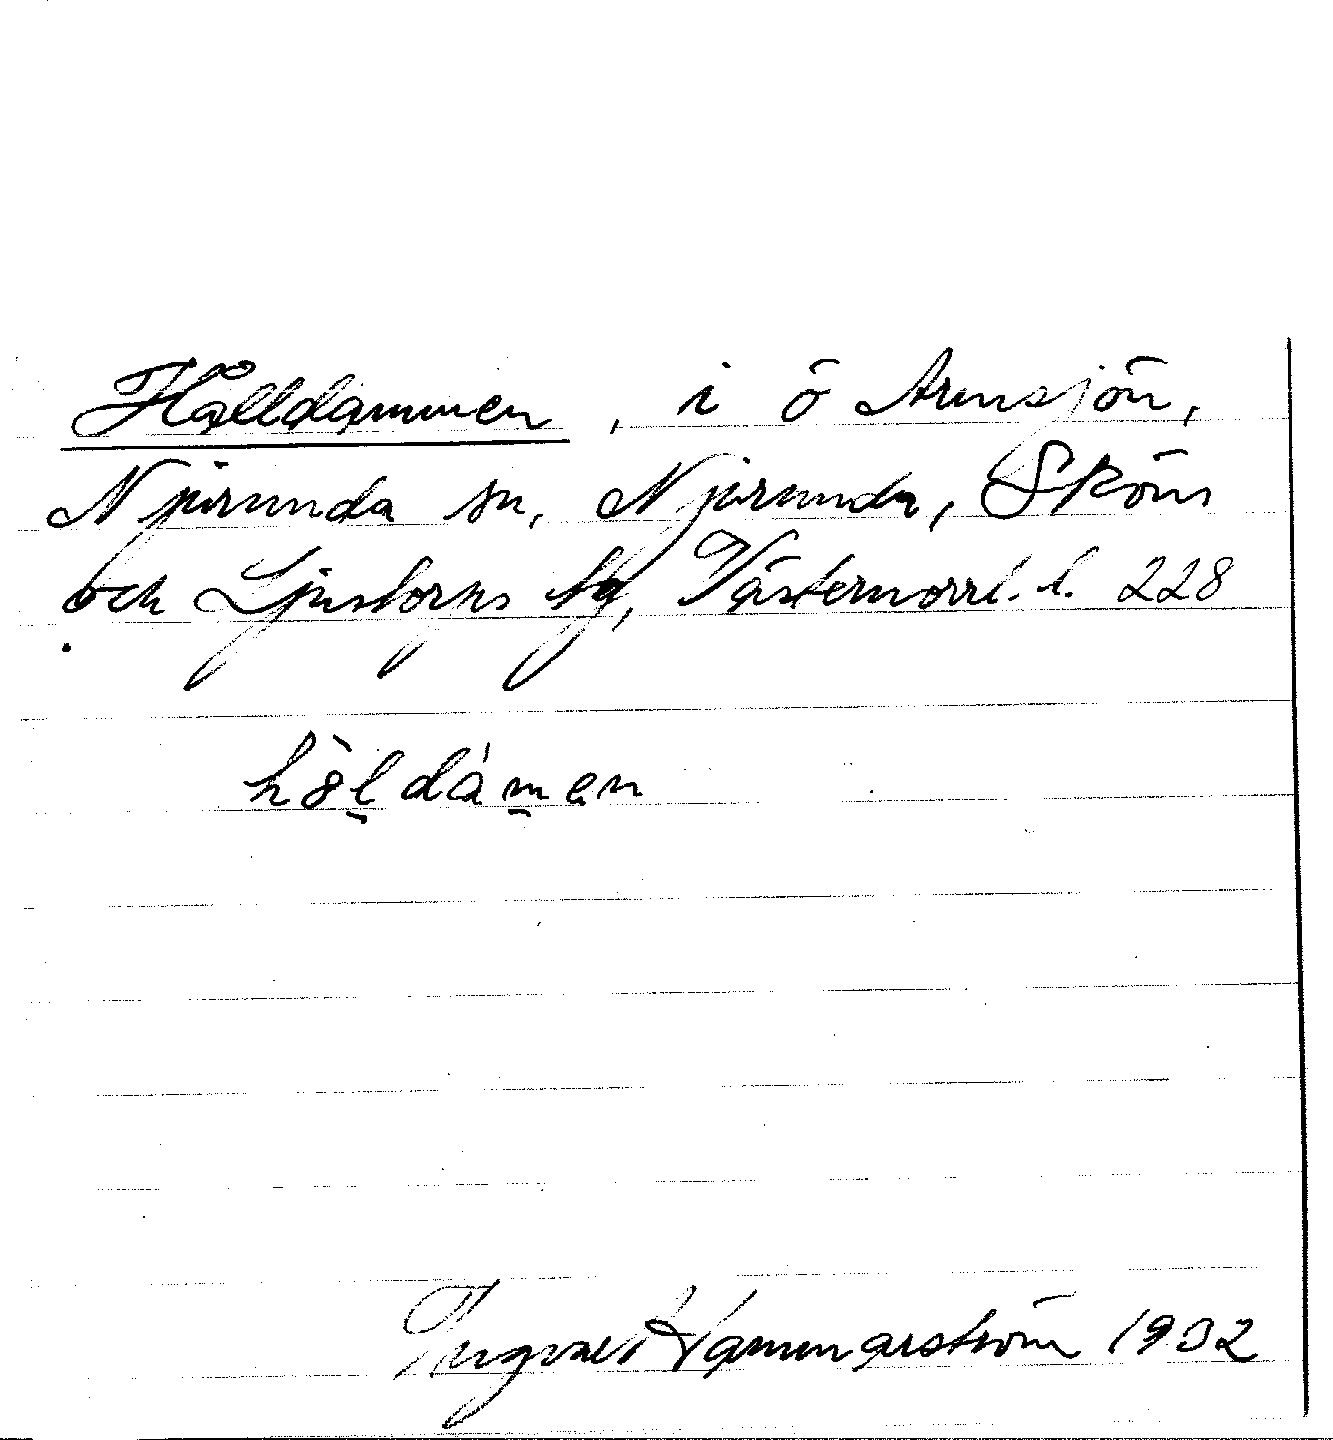 Hålldammen, i ö Armsjön,
Njurunda sn, Njurunda, Sköns
och Ljustorps tg, Västernorrl. l. 228
hòldámen
Ingvar Hammarström 1932